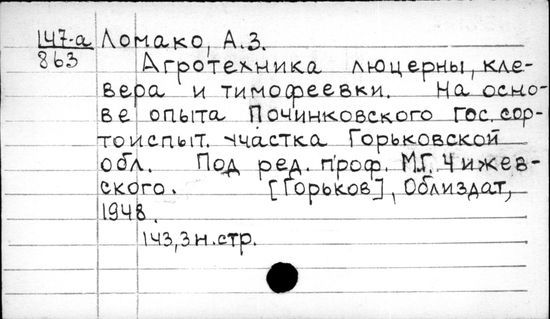 147-а Ломако, А.З.
863
Агротехника люцерны, кле-
вера и тимофеевки. На осно-
ве опыта Починковского Гос. сор-
тоиспыт. участка Горьковской
обл. Под ред. проф. М.Г. Чижев-
ского. [Горьков], Облиздат,
1948.
143,3 н.стр.